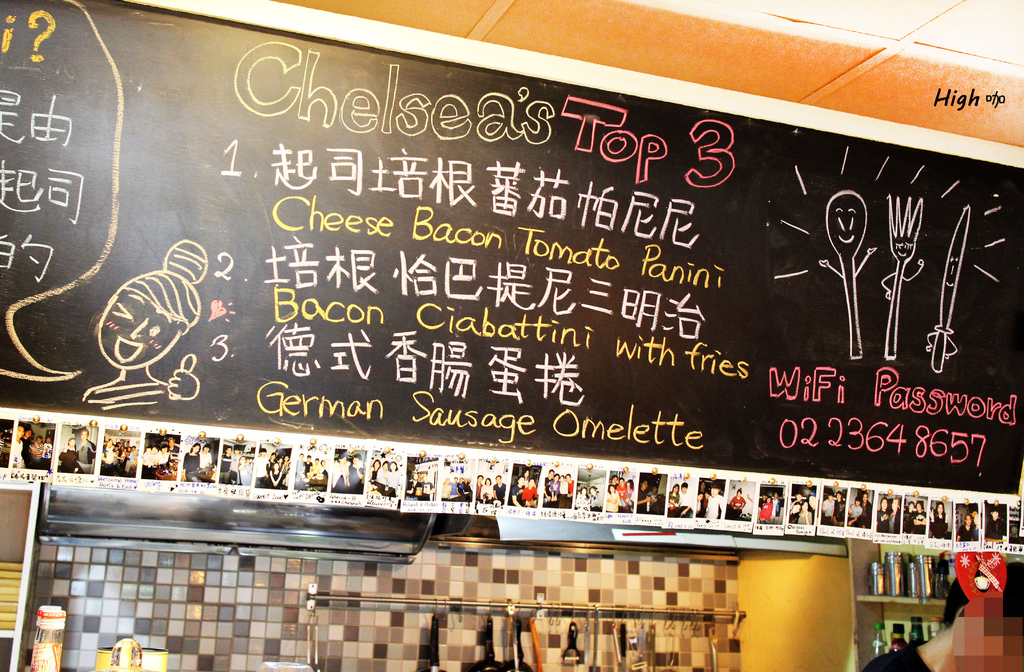 i?
是由
起司
的
High 咖
Chelsea's Top 3
1. 起司培根蕃茄帕尼尼
Cheese Bacon Tomato Panini
2. 培根恰巴提尼三明治
Bacon Ciabattini with fries
3. 德式香腸蛋捲
German Sausage Omelette
WiFi Password
0223648657